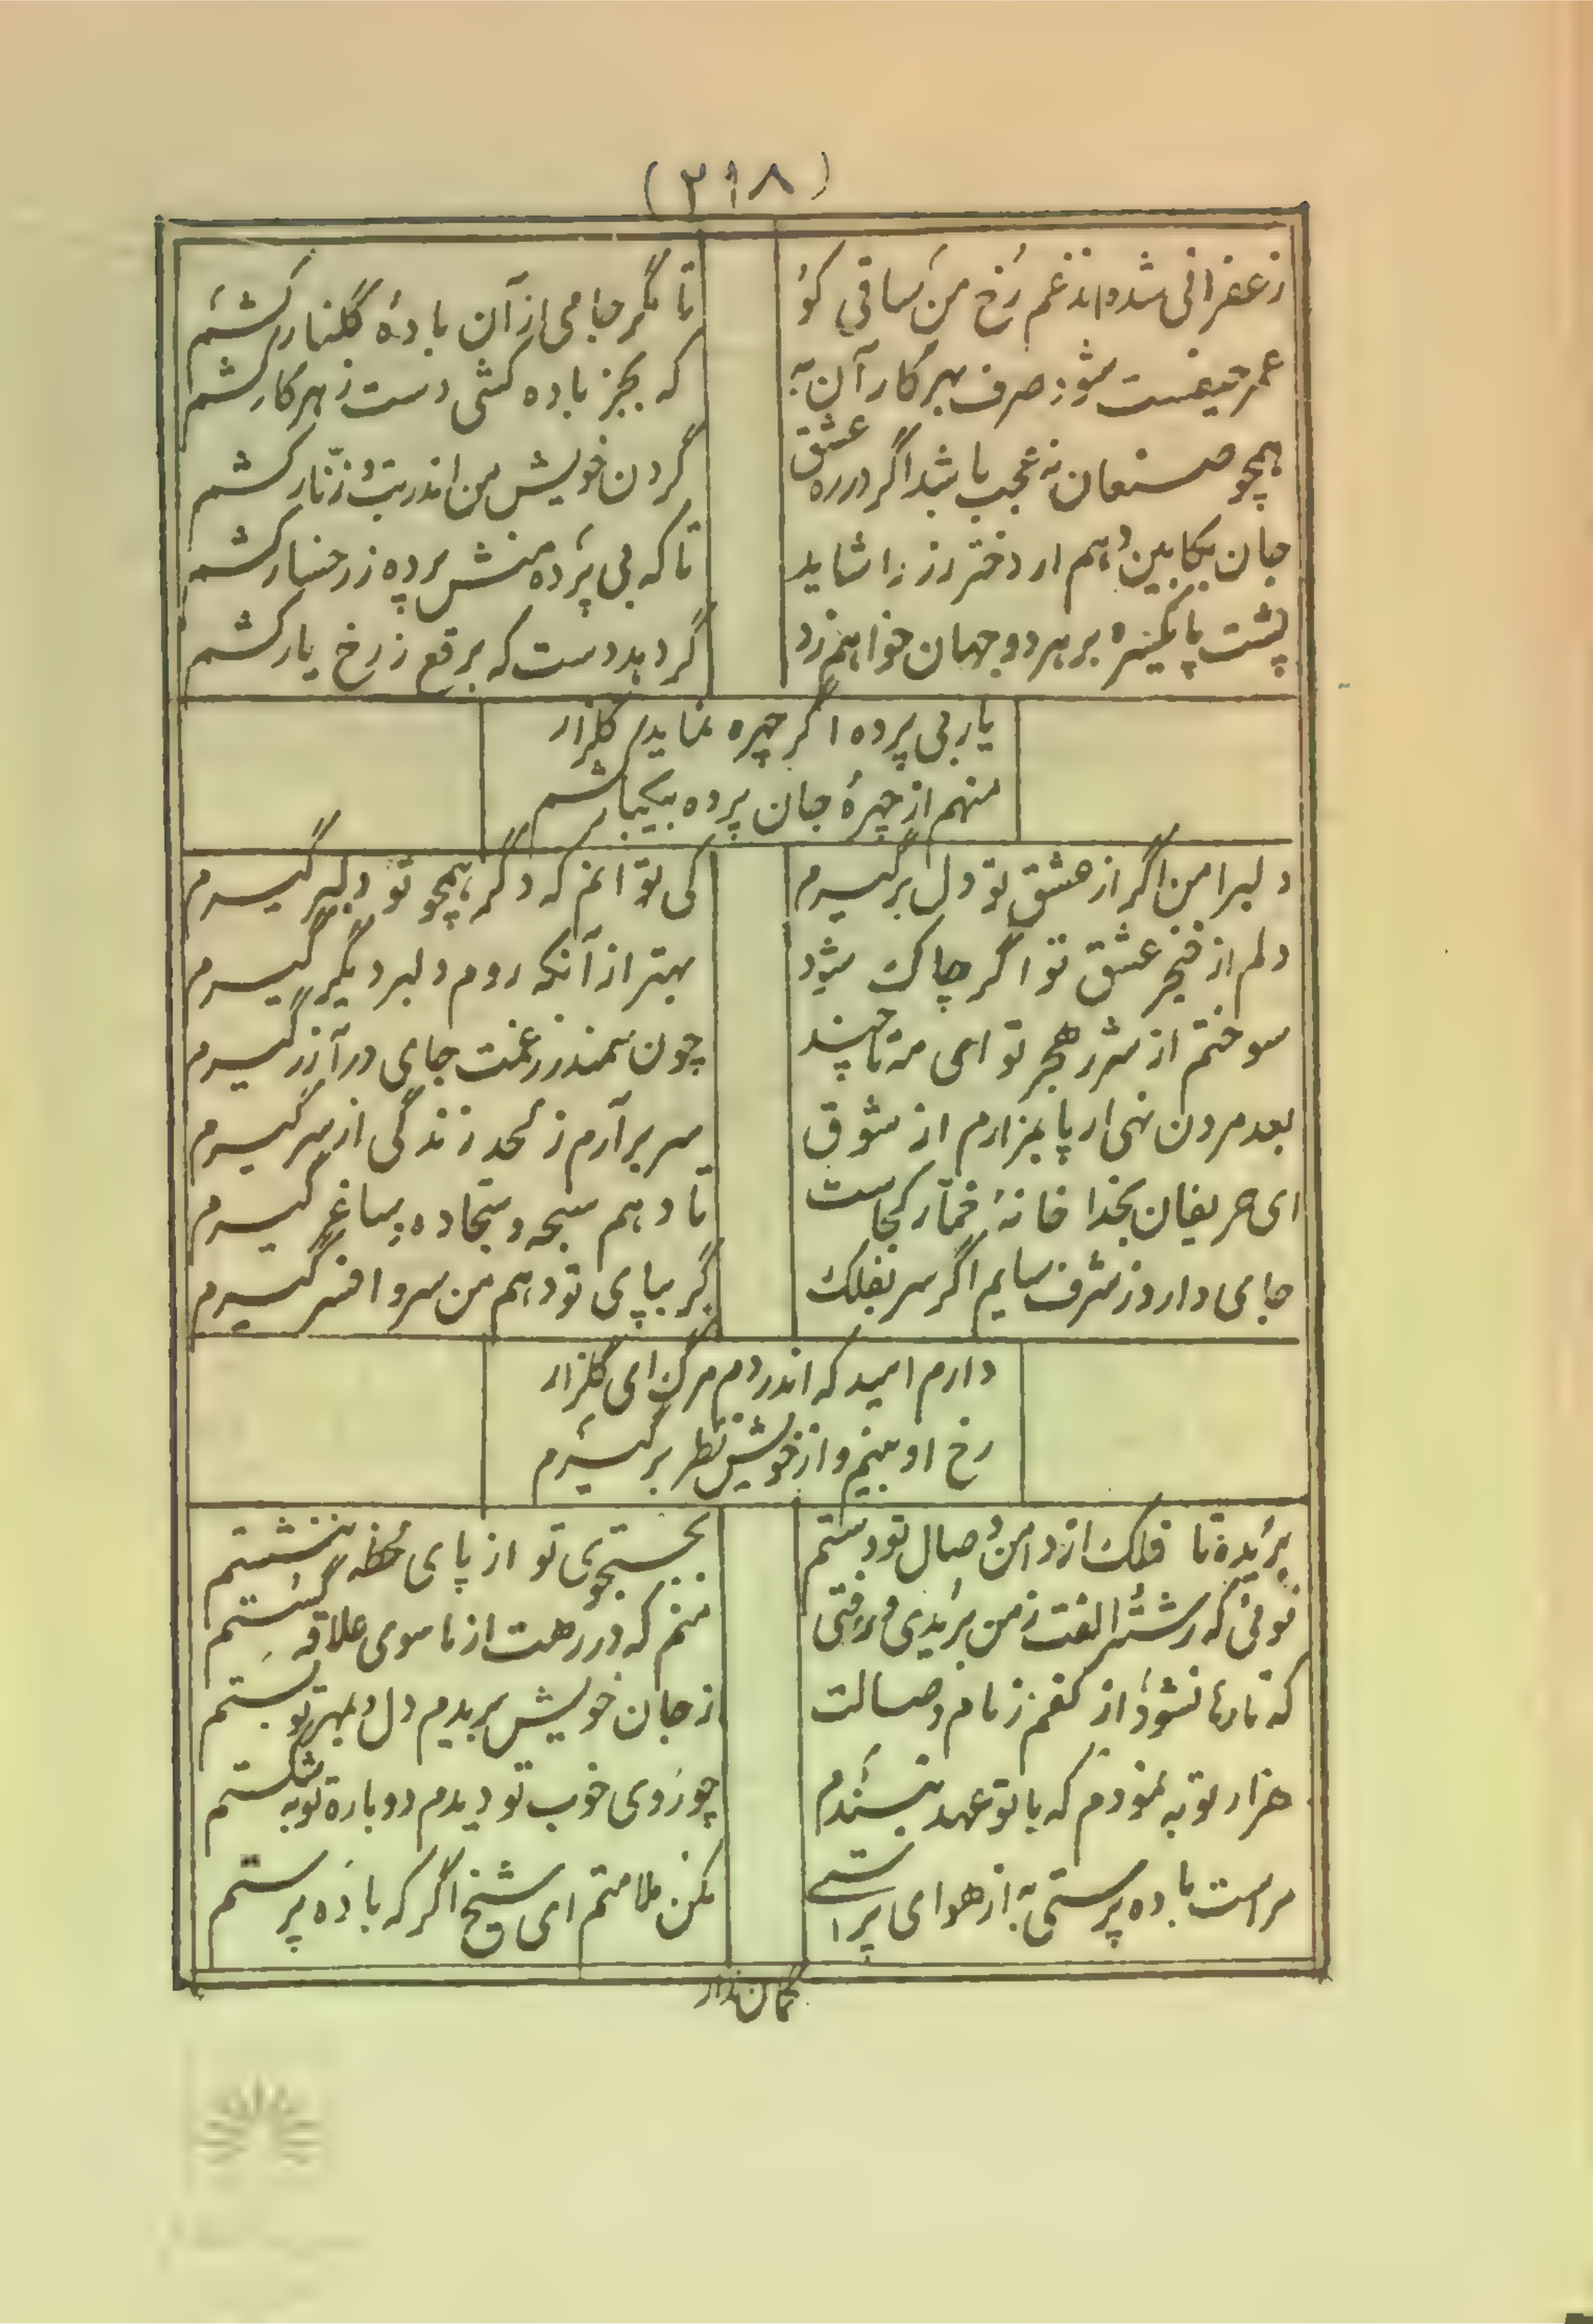 (۲۱۸)
زعفرانی شده از غم رُخ من ساقی کو
تا مگر جامی از آن بادهٔ گلنار کشم
عمر حیفست شود صرف بهر کار آن به
که بجز باده کشی دست ز هر کار کشم
همچو صنعان نه عجب باشد اگر در ره عشق
گردن خویش من اندر بت و زنّار کشم
جان بکابین دهم ار دختر رز را شاید
تا که بی پرده منش پرده ز رخسار کشم
پشت پا یکسره بر هر دو جهان خواهم زد
گر دهد دست که برقع ز رخ یار کشم
یار بی پرده اگر چهره نماید گلزار
منهم از چهرهٔ جان پرده بیکبار کشم
دلبرا من اگر از عشق تو دل برگیرم
کی توانم که دگر همچو تو دلبر گیرم
دلم از خنجر عشق تو اگر چاک شود
بهتر از آنکه روم دلبر دیگر گیرم
سوختم از شرر هجر تو ای مه تا چند
چون سمندر ز غمت جای در آذر گیرم
بعد مردن نهی ار پا بمزارم از شوق
سر برآرم ز لحد زندگی از سر گیرم
ای حریفان بخدا خانهٔ خمّار کجاست
تا دهم سبحه و سجّاده و ساغر گیرم
جای دارد ز شرف سایم اگر سر بفلک
گر بپای تو دهم من سر و افسر گیرم
دارم امید که اندر دم مرگ ای گلزار
رخ او بینم و از خویش نظر برگیرم
بریده تا فلک از دامن وصال تو دستم
بجستجوی تو از پای لحظه ننشستم
توئی که رشتهٔ الفت ز من بریدی و رفتی
منم که در رهت از ماسوی علاقه گسستم
که تا رها نشود از کفم زمام وصالت
از جان خویش بریدم دل و بمهر تو بستم
هزار توبه نمودم که با تو عهد نبندم
چو روی خوب تو دیدم دوباره توبه شکستم
مراست باده پرستی به از هوای پرستی
مکن ملامتم ای شیخ اگر که باده پرستم
گمان مدار